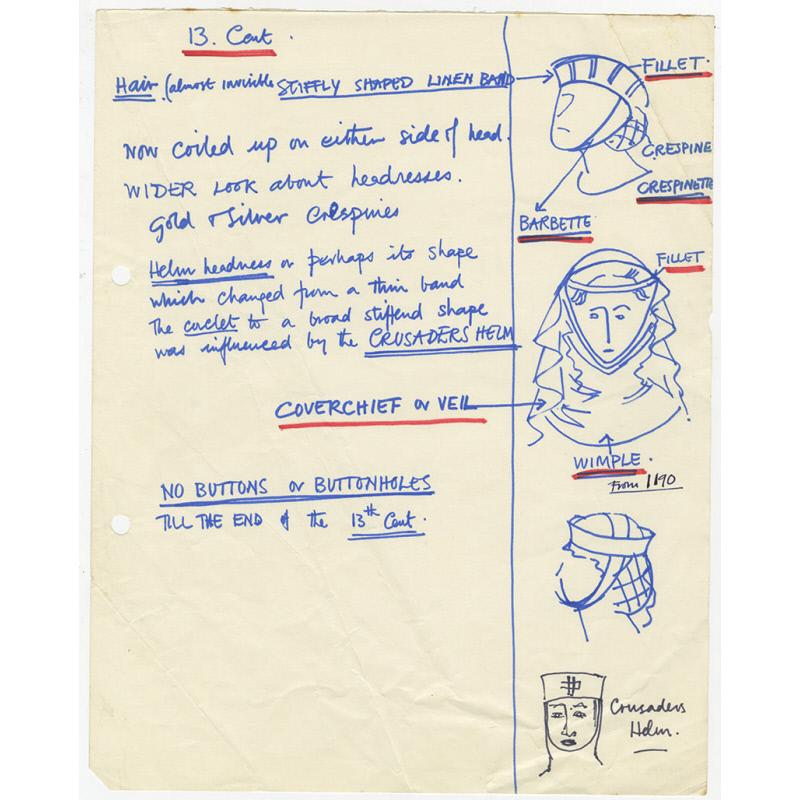 13. Cent.
Hair. (almost invisible STIFFLY SHAPED LINEN BAND
FILLET.
Now coiled up on either side of head.
CRESPINE
WIDER LOOK about headresses.
CRESPINETTE
Gold & Silver Crespines
BARBETTE
Helm headness or perhaps its shape
FILLET
which changed from a thin band
The circlet to a broad stiffend shape
was influenced by the CRUSADERS HELM
COVERCHIEF or VEIL
WIMPLE.
From 1190
NO BUTTONS or BUTTONHOLES
TILL THE END of the 13th Cent.
Crusaders
Helm.